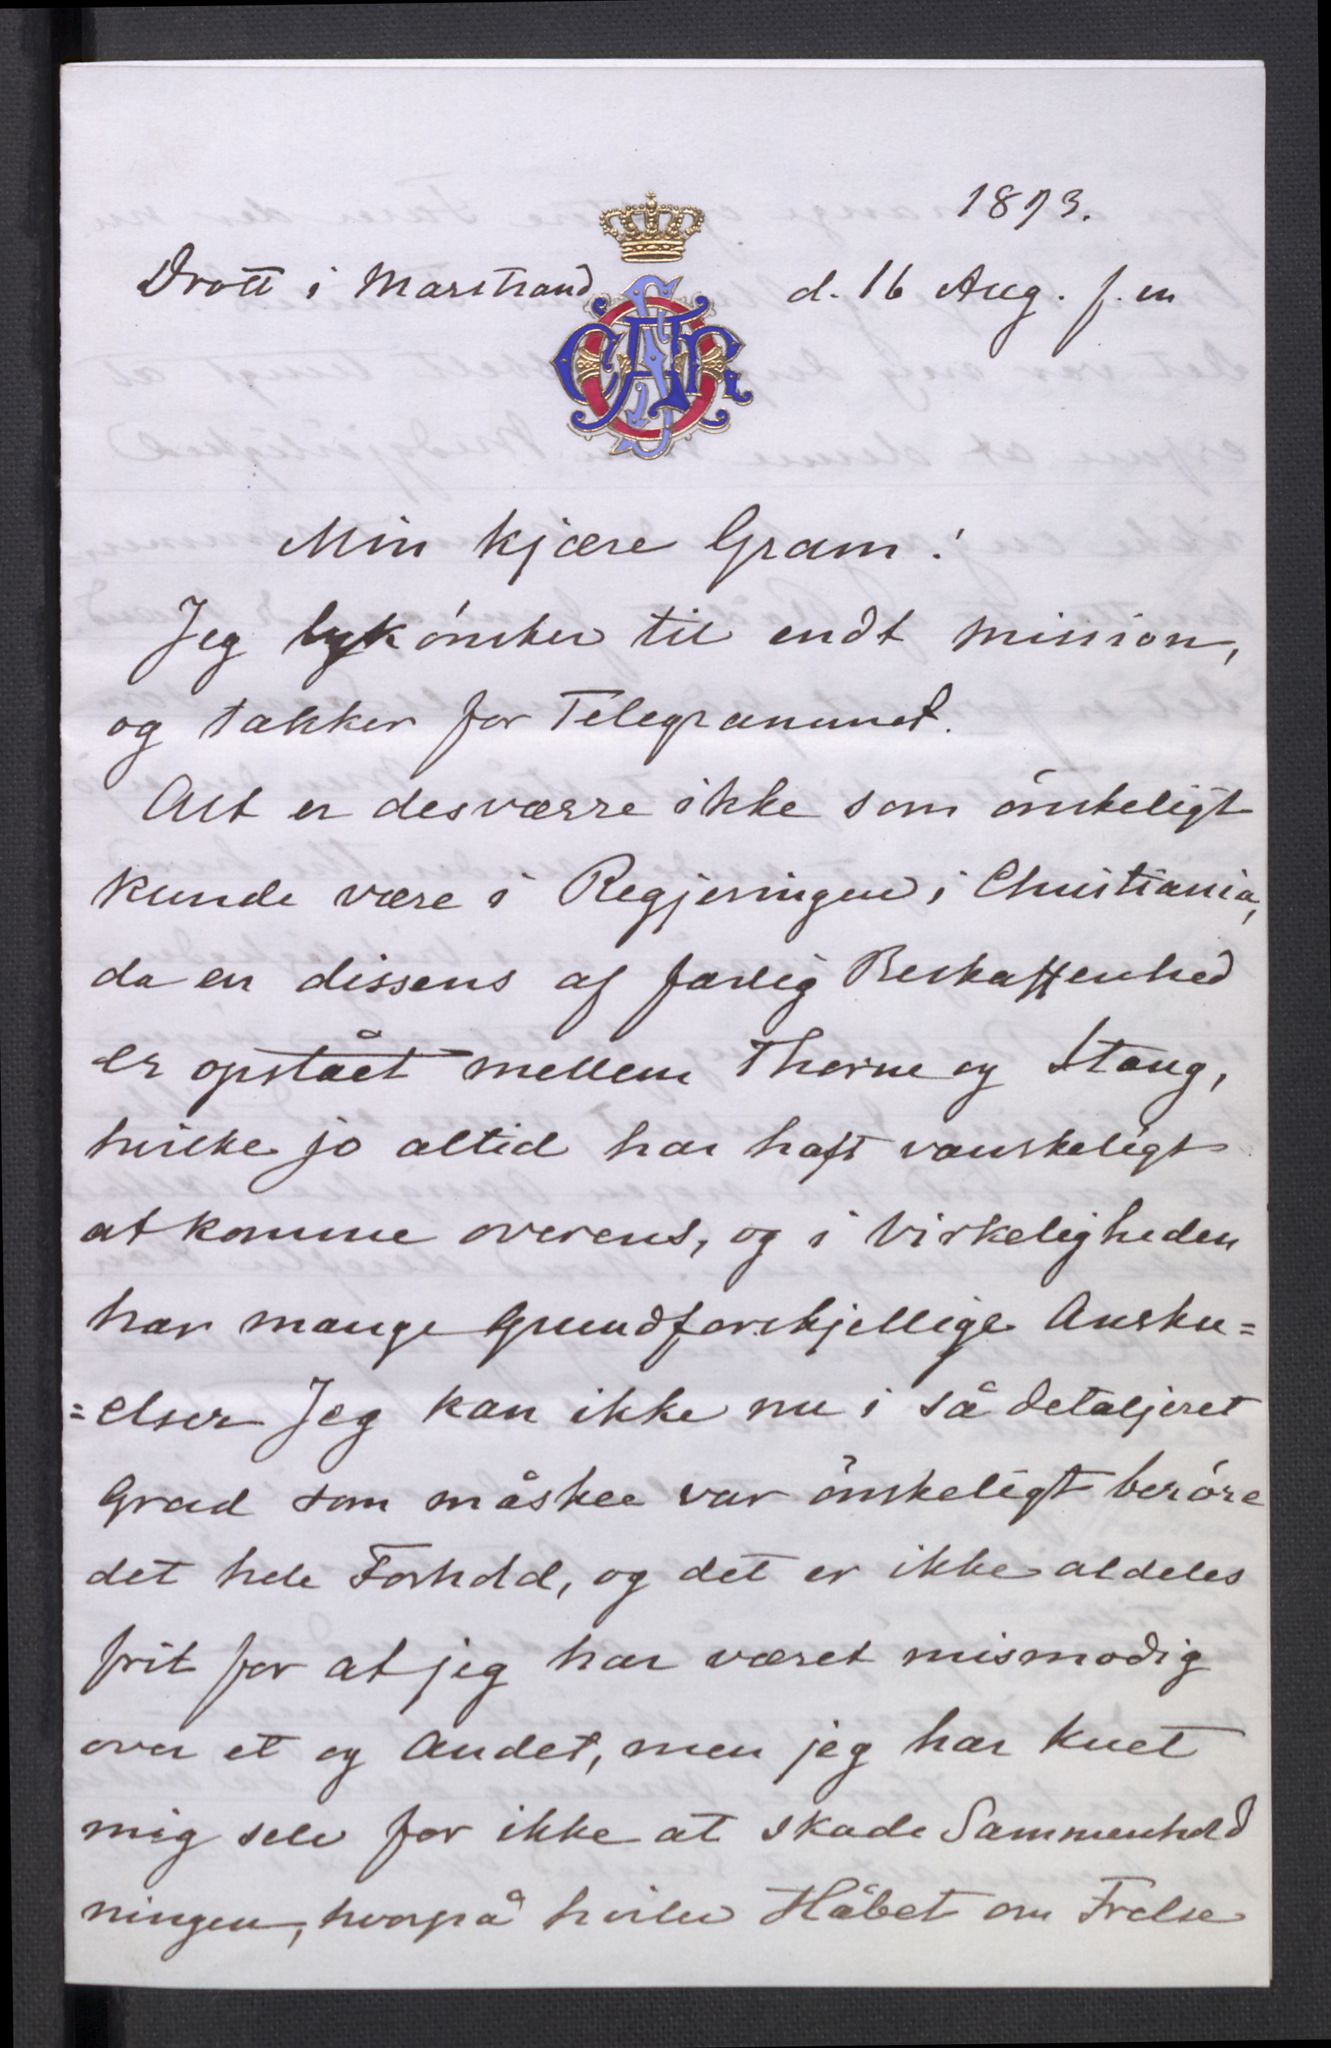 1893.
Drott i Marstrand
d. 16 Aug. f. m
Min kjære Gram!
Jeg lykønsker til endt mission,
og takker for Telegrammet.
Alt er desværre ikke som ønskeligt
kunde være i Regjeringen i Christiania,
da en dissens af farlig Beskaffenhed
er opstået mellem Thorne og Stang,
hvilke jo altid har haft vanskeligt
at komme overens, og i Virkeligheden
har mange grundforskjellige Ansku=
=elser Jeg kan ikke nu i så detaljeret
Grad som måskee var ønskeligt berøre
det hele Forhold, og det er ikke aldeles
frit for at jeg har været mismodig
over et og Andet, men jeg har kuet
mig selv for ikke at skade Sammenhold
ningen, hvorpå hviler Håbet om Frelse